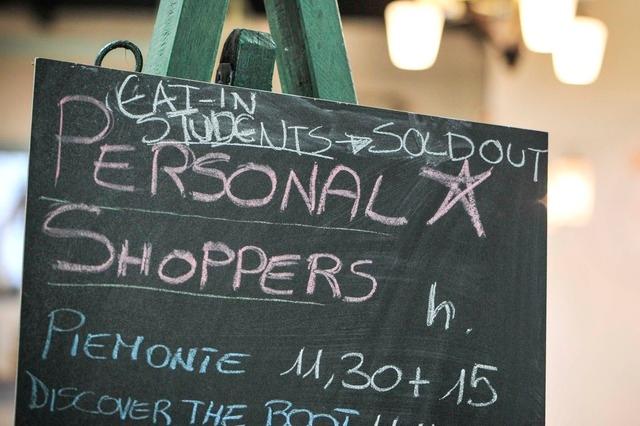 EAT-IN
STUDENTS → SOLD OUT
PERSONAL
SHOPPERS
h.
PIEMONTE 11,30 + 15
DISCOVER THE BOOT